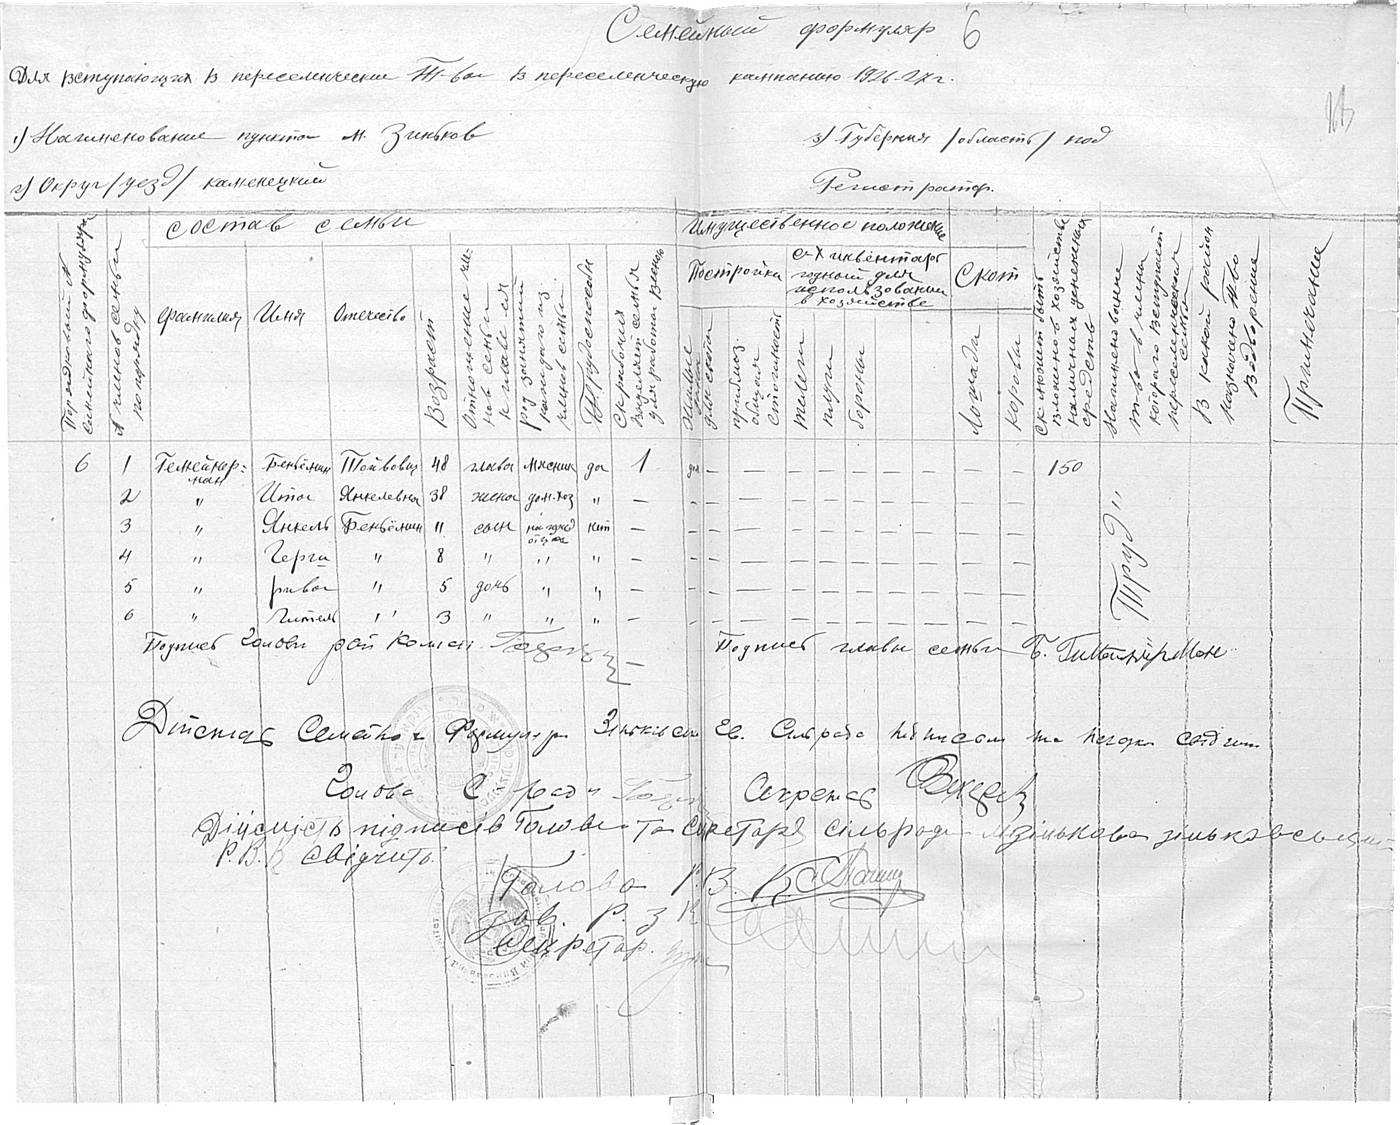 Семейный формуляр 6
Для вступающих в переселенческие Т-ва в переселенческую кампанию 1926-27 г.
1) Наименование пункта м. Зиньков
3) Губерния /область/ под
2) Округ /уезд/ каменецкий
Регистратор.
состав семьи
Имущественное положение
Порядковый № семейного формуляра
№ членов семьи по порядку
Фамилия
Имя
Отечество
Возраст
Отношение членов семьи к главе ея
род занятий каждого из членов семьи
Трудоспособн
Ск рабочих выделяет семья для работы весны
Постройка
с-х инвентарь годный для использования в хозяйстве
Скот
Жилые
для скота
приблиз. общая стоимость
телеги
плуги
бороны
Лошади
коровы
Ск может быть вложено в хозяйство наличных денежных средств
Наименование т-ва в члены которого вступает переселенческая семья
В какой район назначено т-во Водворение
Примечание
6 1 Гемейнер= ман Беньёмин Тойвович 48 глава мясник да 1 да — — — — — — — — 150
2 " Ита Янкелевна 38 жена дом.хоз " — — — — — — — — —
3 " Янкель Беньёмин 11 сын на изжд отца нет — — — — — — — — —
4 " Герш " 8 " " " — — — — — — — — —
5 " рива " 5 дочь " " — — — — — — — — —
6 " Гитель " 3 " " " — — — — — — — — —
"Труд"
Подпись Голови рай комис.
Подпись главы семьи Б. Гимейнирман
Дійсність Семейного Формуляру Зіньківська Ев. Сільрада підписом та печаткою свідчить
Голова С ради Секретар
Дійсність підписів Голови та Секретаря сільради м Зінькова Зіньковський
Р.В.К свідчить.
Голова Р.В.К
зав. Р.З.К
Секретар.